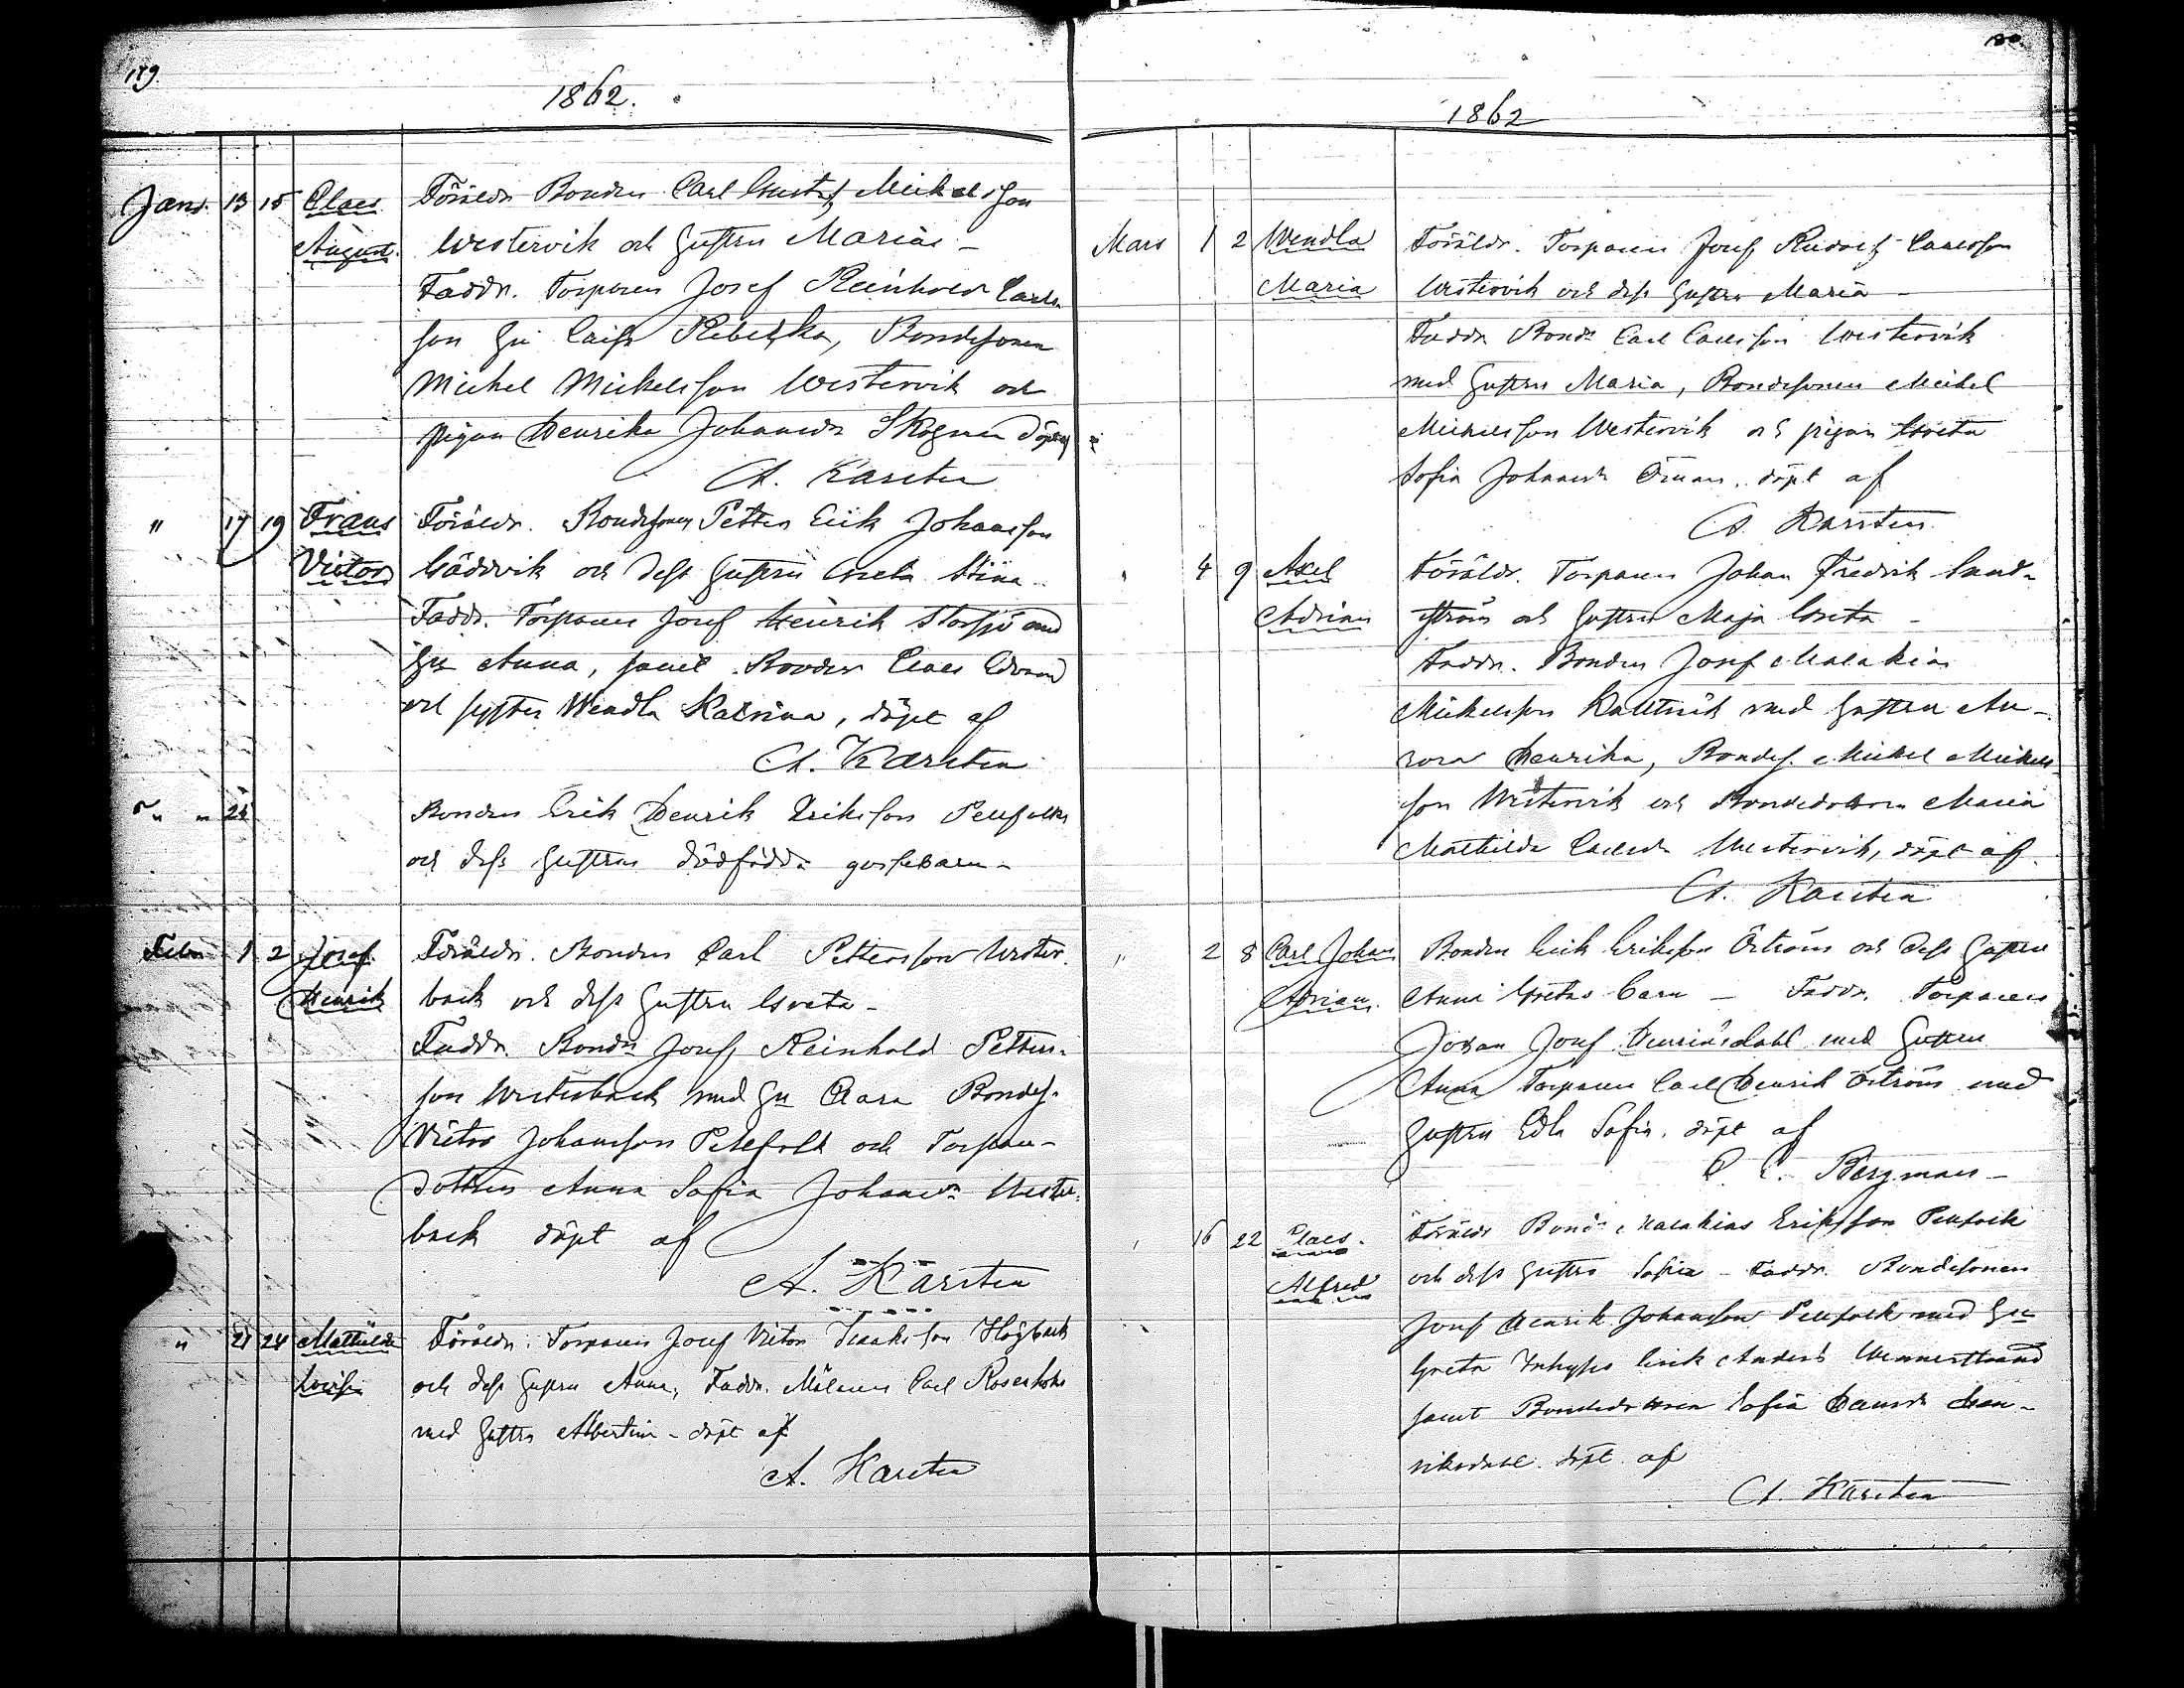 189.
1862.
Janr. 13 15 Claes Föräldr Bonden Carl Gustaf Mickelsson
August. Westervik och Hustru Maria –
Faddr. Torparen Josef Reinhold Carls
son Hu Caisa Rebecka, Bondesonen
Mickel Mickelsson Westervik och
pigan Henrika Johansdr Skogman döpt af
A. Karsten
" 17 19 Frans Föräldr. Bondesonen Petter Erik Johansson
Victor Gäddvik och dess Hustru Greta Stina
Faddr. Torparen Josef Henrik Storsjö med
Hu Anna, samt Claes Edvard
och syster Wendla Katrina, döpt af
A. Karsten
" " 24 Bonden Erik Henrik Eriksson Pellfolk
och dess Hustrus dödfödda gossebarn –
Febr 1 2 Josef Föräldr. Bonden Carl Pettersson Wester
Henrik back och dess Hustru Greta –
Faddr. Bondn Josef Reinhold Petters-
son Westerback med Hu Clara Bondes.
Victor Johansson Pellfolk och Torpare-
dottren Anna Sofia Johansdr Wester
back döpt af
A. Karsten
" 21 24 Mathilda Föräldr. Torparen Josef Victor Isaksson Högback
Lovisa och dess Hustru Anna, Faddr. Målaren Carl
med Hustru Albertina – döpt af
A. Karsten
190.
1862
Mars 1 2 Wendla Föräldr. Torparen Josef Rudolf Carlsson
Maria Westervik och dess Hustru Maria –
Faddr Bondn Carl Carlsson Westervik
med Hustru Maria, Bondesonen Mickel
Mickelsson Westervik och pigan Greta
Sofia Johansdr Öman, döpt af
A. Karsten
" 4 9 Axel Föräldr. Torparen Johan Fredrik Sand-
Adrian ström och Hustru Maja Greta –
Faddr. Bonden Josef Malakias
Mickelsson med Hustru Au-
rora Henrika, Bondes. Mickel Mickels
son Westervik och Bondedottren Maria
Mathilda Carlsdr Westervik, döpt af
A. Karsten
" 2 8 Carl Johan Bonden Erik Eriksson Öström och dess Hustru
Adrian. Anna Gretas barn – Faddr. Torparen
Johan Josef Henriksdahl med Hustru
Anna Torparen Carl Henrik Öström med
Hustru Edla Sofia, döpt af
Bergman –
" 16 22 Claes Föräldr Bondn Malakias Eriksson Pellfolk
Alfred och dess Hustru Sofia – Faddr. Bondesonen
Josef Henrik Johansson Pellfolk med Hu
Greta Inhyses Erik Anders Wennerstrand
samt Bondedottren Sofia Hansdr Hen-
riksdahl döpt af
A. Karsten